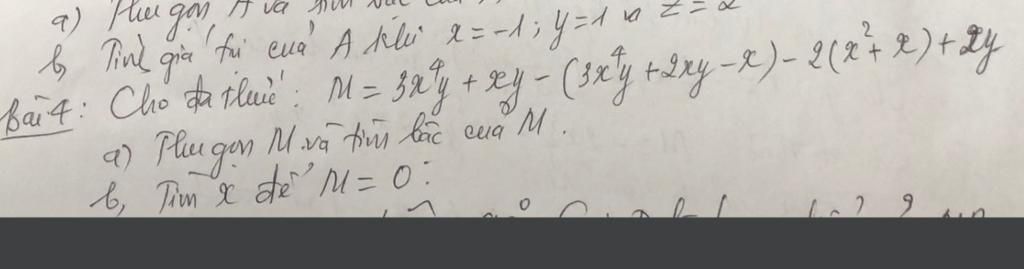 a) Thu gọn A và tìm bậc của
b, Tính giá trị của A khi x = -1; y = 1 và z = 2
Bài 4: Cho đa thức: M = 3x⁴y + xy - (3x⁴y + 2xy - x) - 2(x² + x) + 2y
a) Thu gọn M và tìm bậc của M.
b, Tìm x để M = 0: